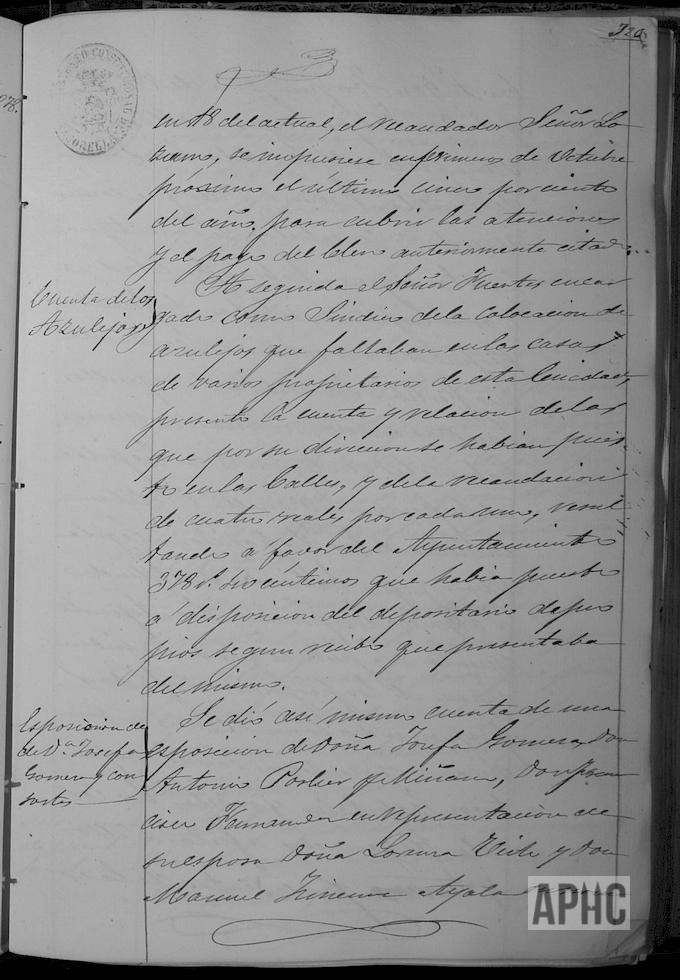 320
278.
en 18 del actual, el recaudador Señor Lo
zano, se impusiese en primeros de Octubre
próximo el último cinco por ciento
del año, para cubrir las atenciones
y el pago del Clero anteriormente citado.
Cuenta de los
Azulejos
A seguida el Señor Fuentes encar
gado como Sindico de la colocacion de
azulejos que faltaban en las casas
de varios propietarios de esta Ciudad,
presentó la cuenta y relacion de las
que por su direccion se habian pues
to en las Calles, y de la recaudacion
de cuatro reales por cada uno, resul
tando á favor del Ayuntamiento
378 r.s céntimos que habia puesto
á disposicion del depositario de pro
pios segun recibo que presentaba
del mismo.
Esposicion de
de D.ª Josefa
Gomera y con
sortes
Se dió asi mismo cuenta de una
esposicion de Doña Josefa Gomera, Don
Antonio Porlier y Miñano, Don Fran
cisco Fernandez en representacion de
su esposa Doña Lorenza y Don
Manuel Jimenez Ayala
APHC